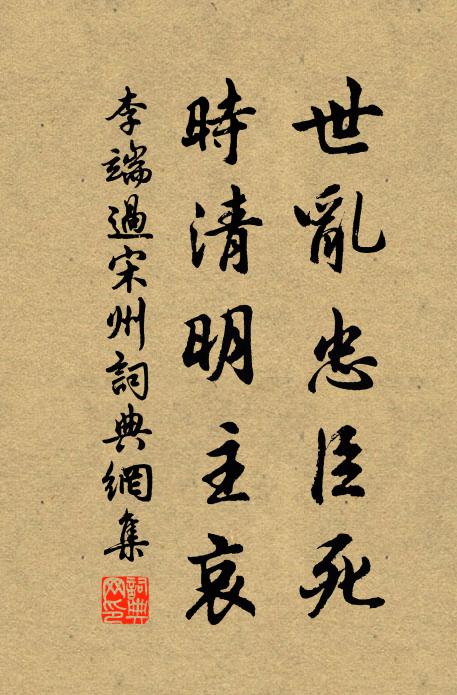 世亂忠臣死
時清明主哀
李端過宋州詞典網集
詞典網印